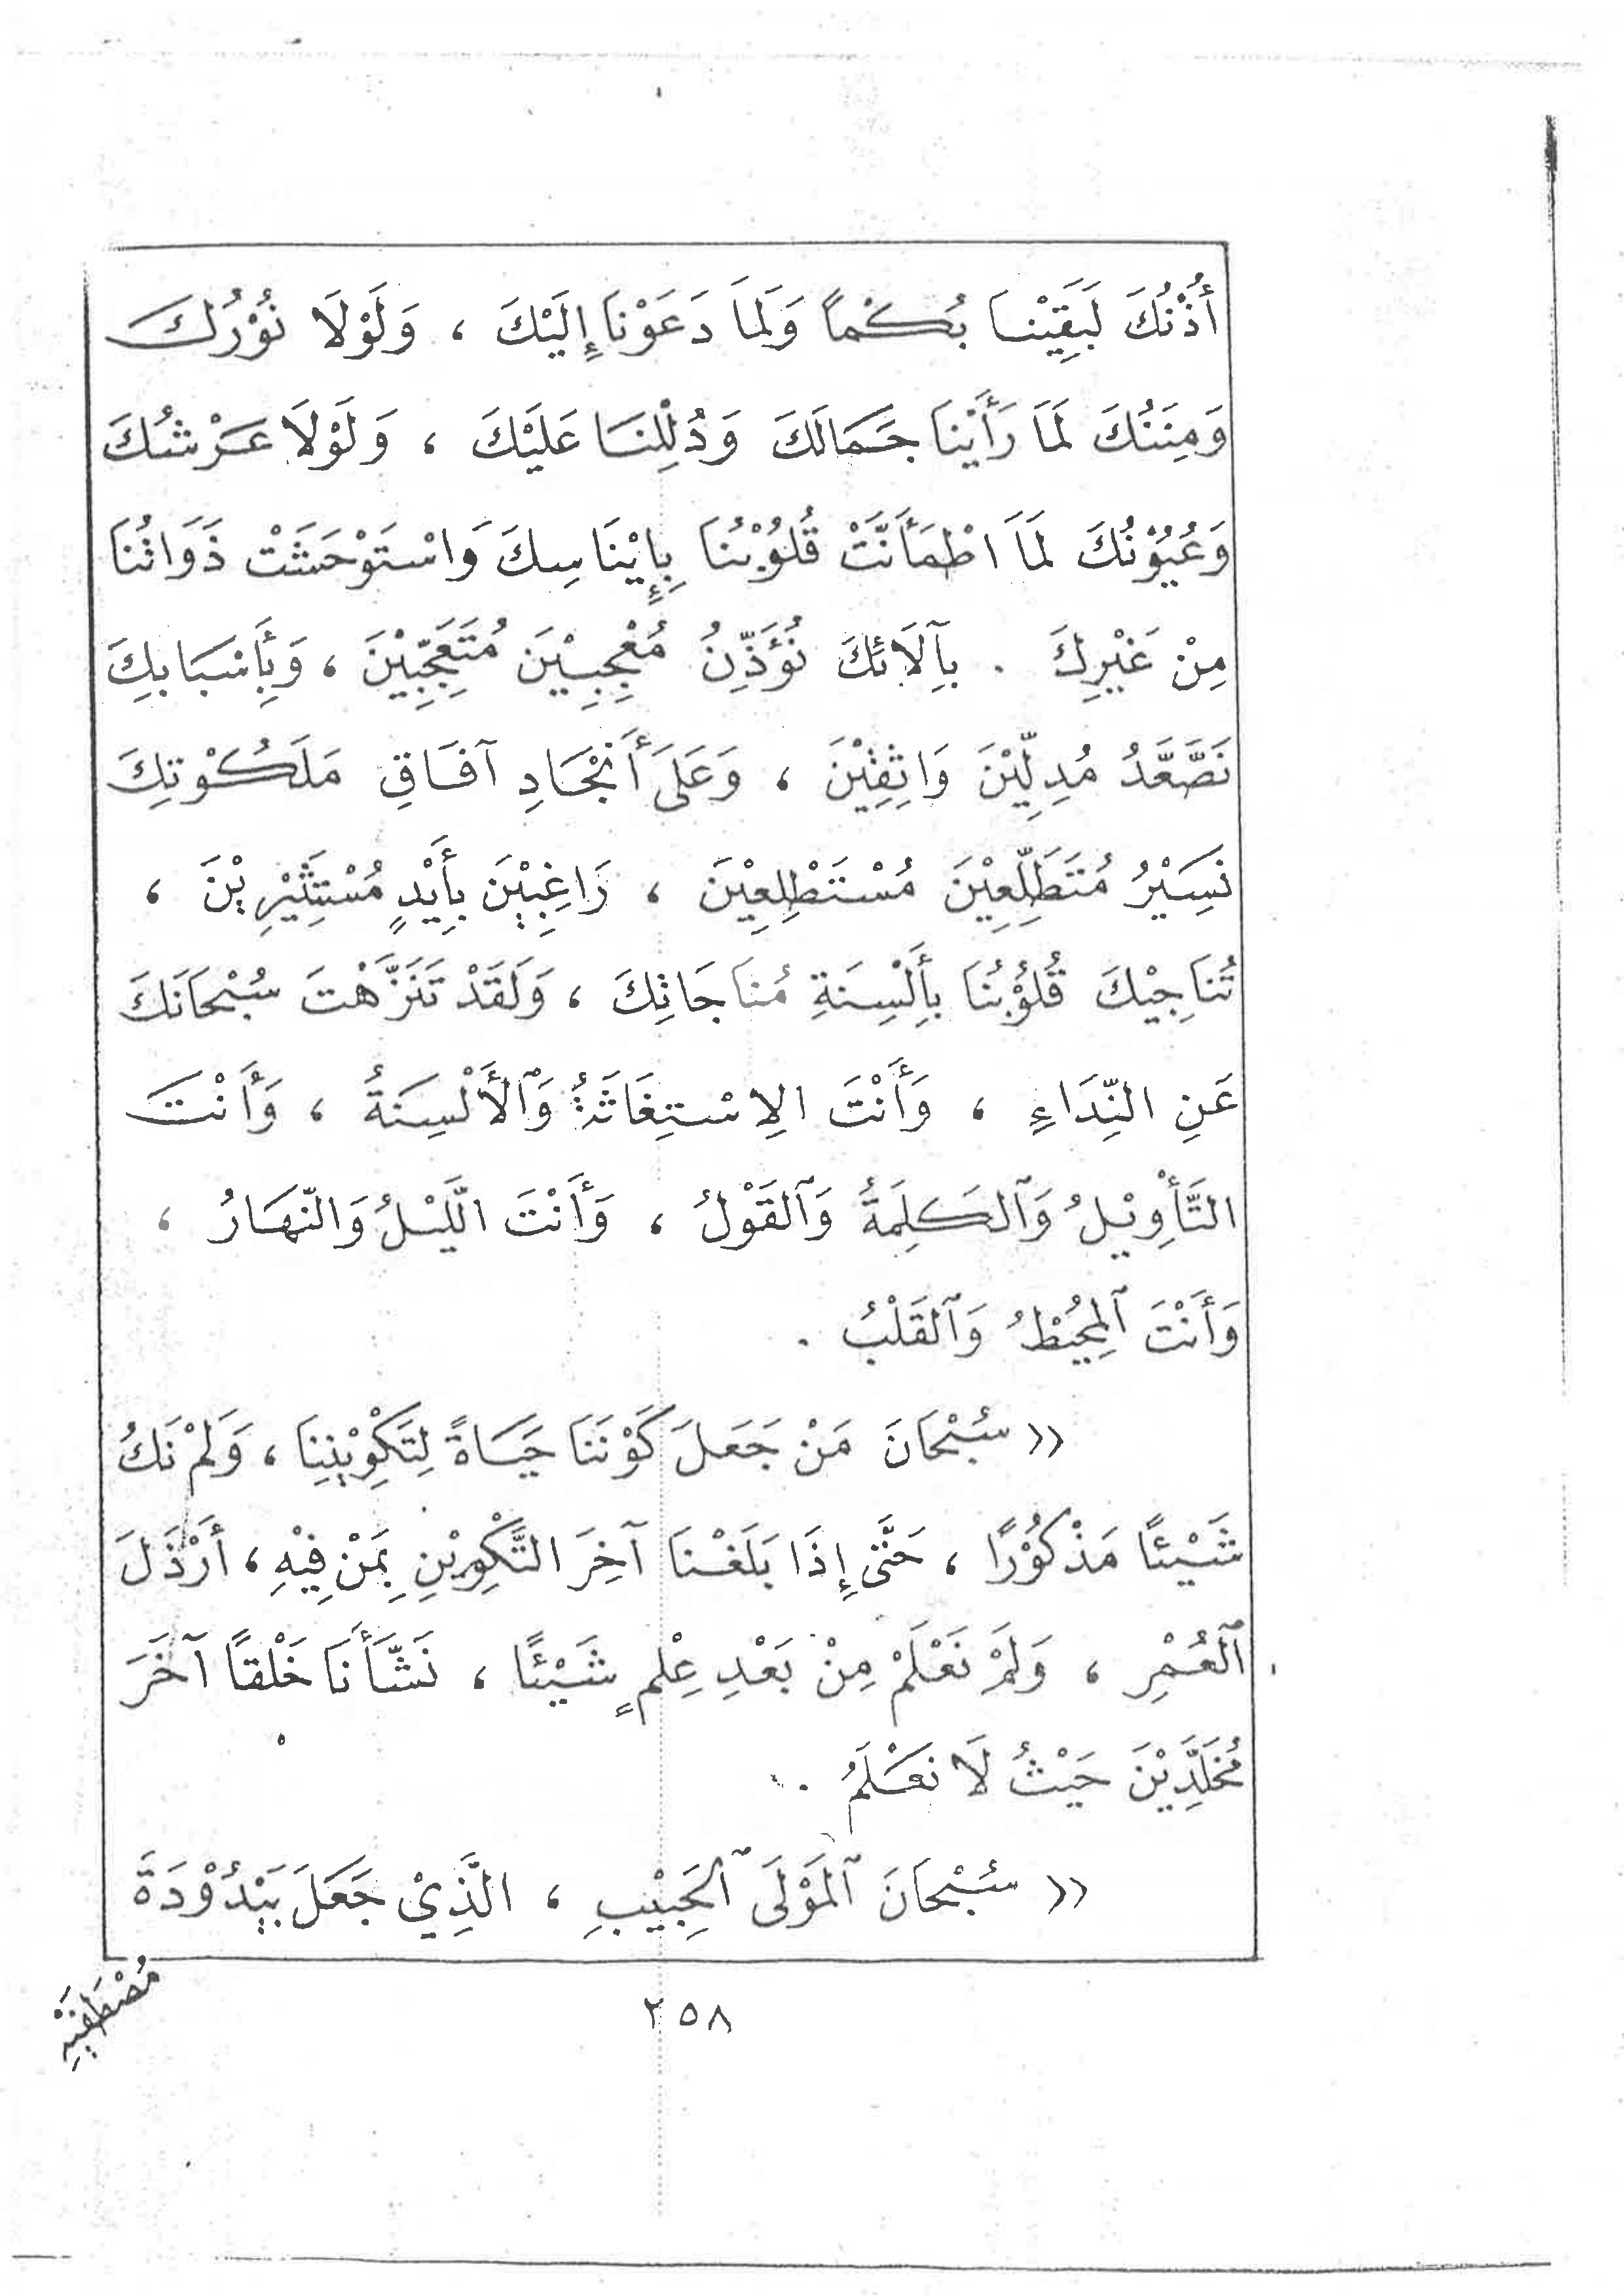 أُذْنُكَ لَبَقِيْنَا بُكْماً وَلَمَا دَعَوْنَا إِلَيْكَ ، وَلَوْلَا نُوْرُكَ
وَمِنَنُكَ لَمَا رَأَيْنَا جَمَالَكَ وَدُلِلْنَا عَلَيْكَ ، وَلَوْلَا عَرْشُكَ
وَعُيُوْنُكَ لَمَا اطْمَأَنَّتْ قُلُوْبُنَا بِإِيْنَاسِكَ وَاسْتَوْحَشَتْ ذَوَاتُنَا
مِنْ غَيْرِكَ . بِآلَائِكَ نُؤَذِّنُ مُعْجِبِيْنَ مُتَعَجِّبِيْنَ ، وَبِأَسْبَابِكَ
نَصَّعَّدُ مُدِلِّيْنَ وَاثِقِيْنَ ، وَعَلَى أَنْجَادِ آفَاقِ مَلَكُوْتِكَ
نَسِيْرُ مُتَطَلِّعِيْنَ مُسْتَطْلِعِيْنَ ، رَاغِبِيْنَ بِأَيْدٍ مُسْتَثِيْرِيْنَ ،
تُنَاجِيْكَ قُلُوْبُنَا بِأَلْسِنَةِ مُنَاجَاتِكَ ، وَلَقَدْ تَنَزَّهْتَ سُبْحَانَكَ
عَنِ النِّدَاءِ ، وَأَنْتَ الِاسْتِغَاثَةُ وَٱلأَلْسِنَةُ ، وَأَنْتَ
التَّأْوِيْلُ وَٱلكَلِمَةُ وَٱلقَوْلُ ، وَأَنْتَ الَّليْلُ وَالنَّهَارُ ،
وَأَنْتَ ٱلمُحِيْطُ وَٱلقَلْبُ .
« سُبْحَانَ مَنْ جَعَلَ كَوْنَنَا حَيَاةً لِتَكْوِيْنِنَا ، وَلَمْ نَكُ
شَيْئًا مَذْكُوْرًا ، حَتَّى إِذَا بَلَغْنَا آخِرَ التَّكْوِيْنِ بِمَنْ فِيْهِ ، أَرْذَلَ
ٱلعُمْرِ ، وَلَمْ نَعْلَمْ مِنْ بَعْدِ عِلْمٍ شَيْئًا ، نَشَّأَنَا خَلْقًا آخَرَ
مُخَلَّدِيْنَ حَيْثُ لَا نَعْلَمُ .
« سُبْحَانَ ٱلمَوْلَى ٱلحَبِيْبِ ، الَّذِيْ جَعَلَ بَيْدُوْدَةَ
٢٥٨